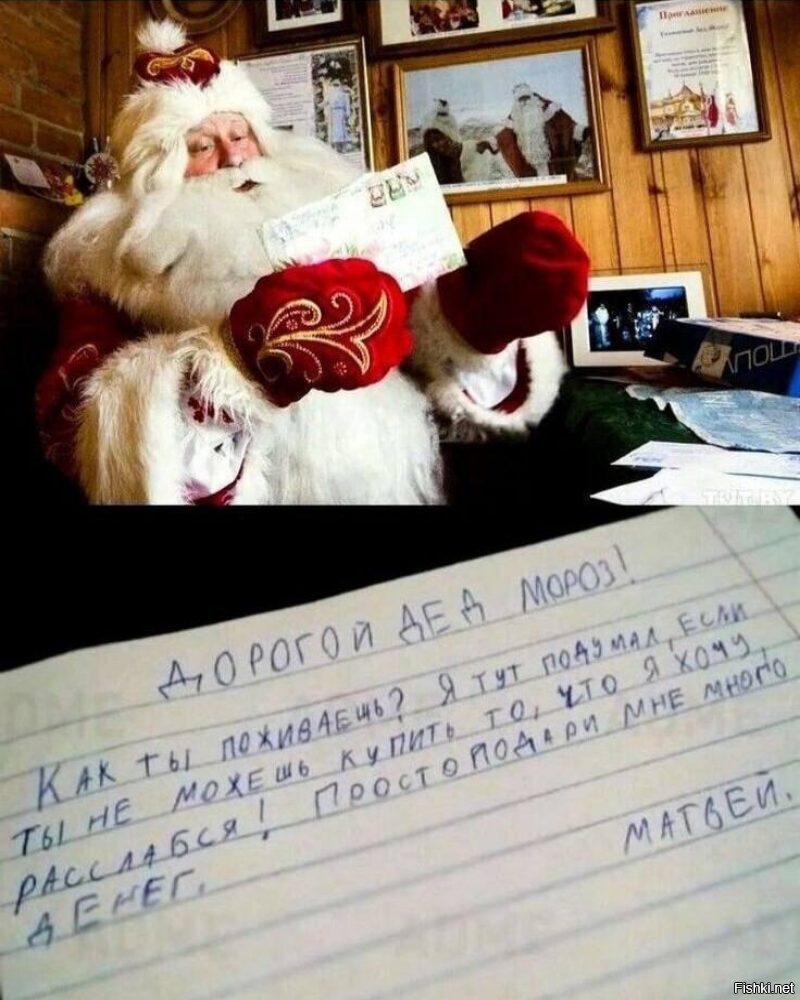 Приглашение
ТУТ.BY
ДОРОГОЙ ДЕД МОРОЗ!
КАК ТЫ ПОЖИВАЕШЬ? Я ТУТ ПОДУМАЛ, ЕСЛИ
ТЫ НЕ МОЖЕШЬ КУПИТЬ ТО, ЧТО Я ХОЧУ,
РАССЛАБСЯ! ПРОСТО ПОДАРИ МНЕ МНОГО
ДЕНЕГ.
МАТВЕЙ.
ADME
Fishki.net